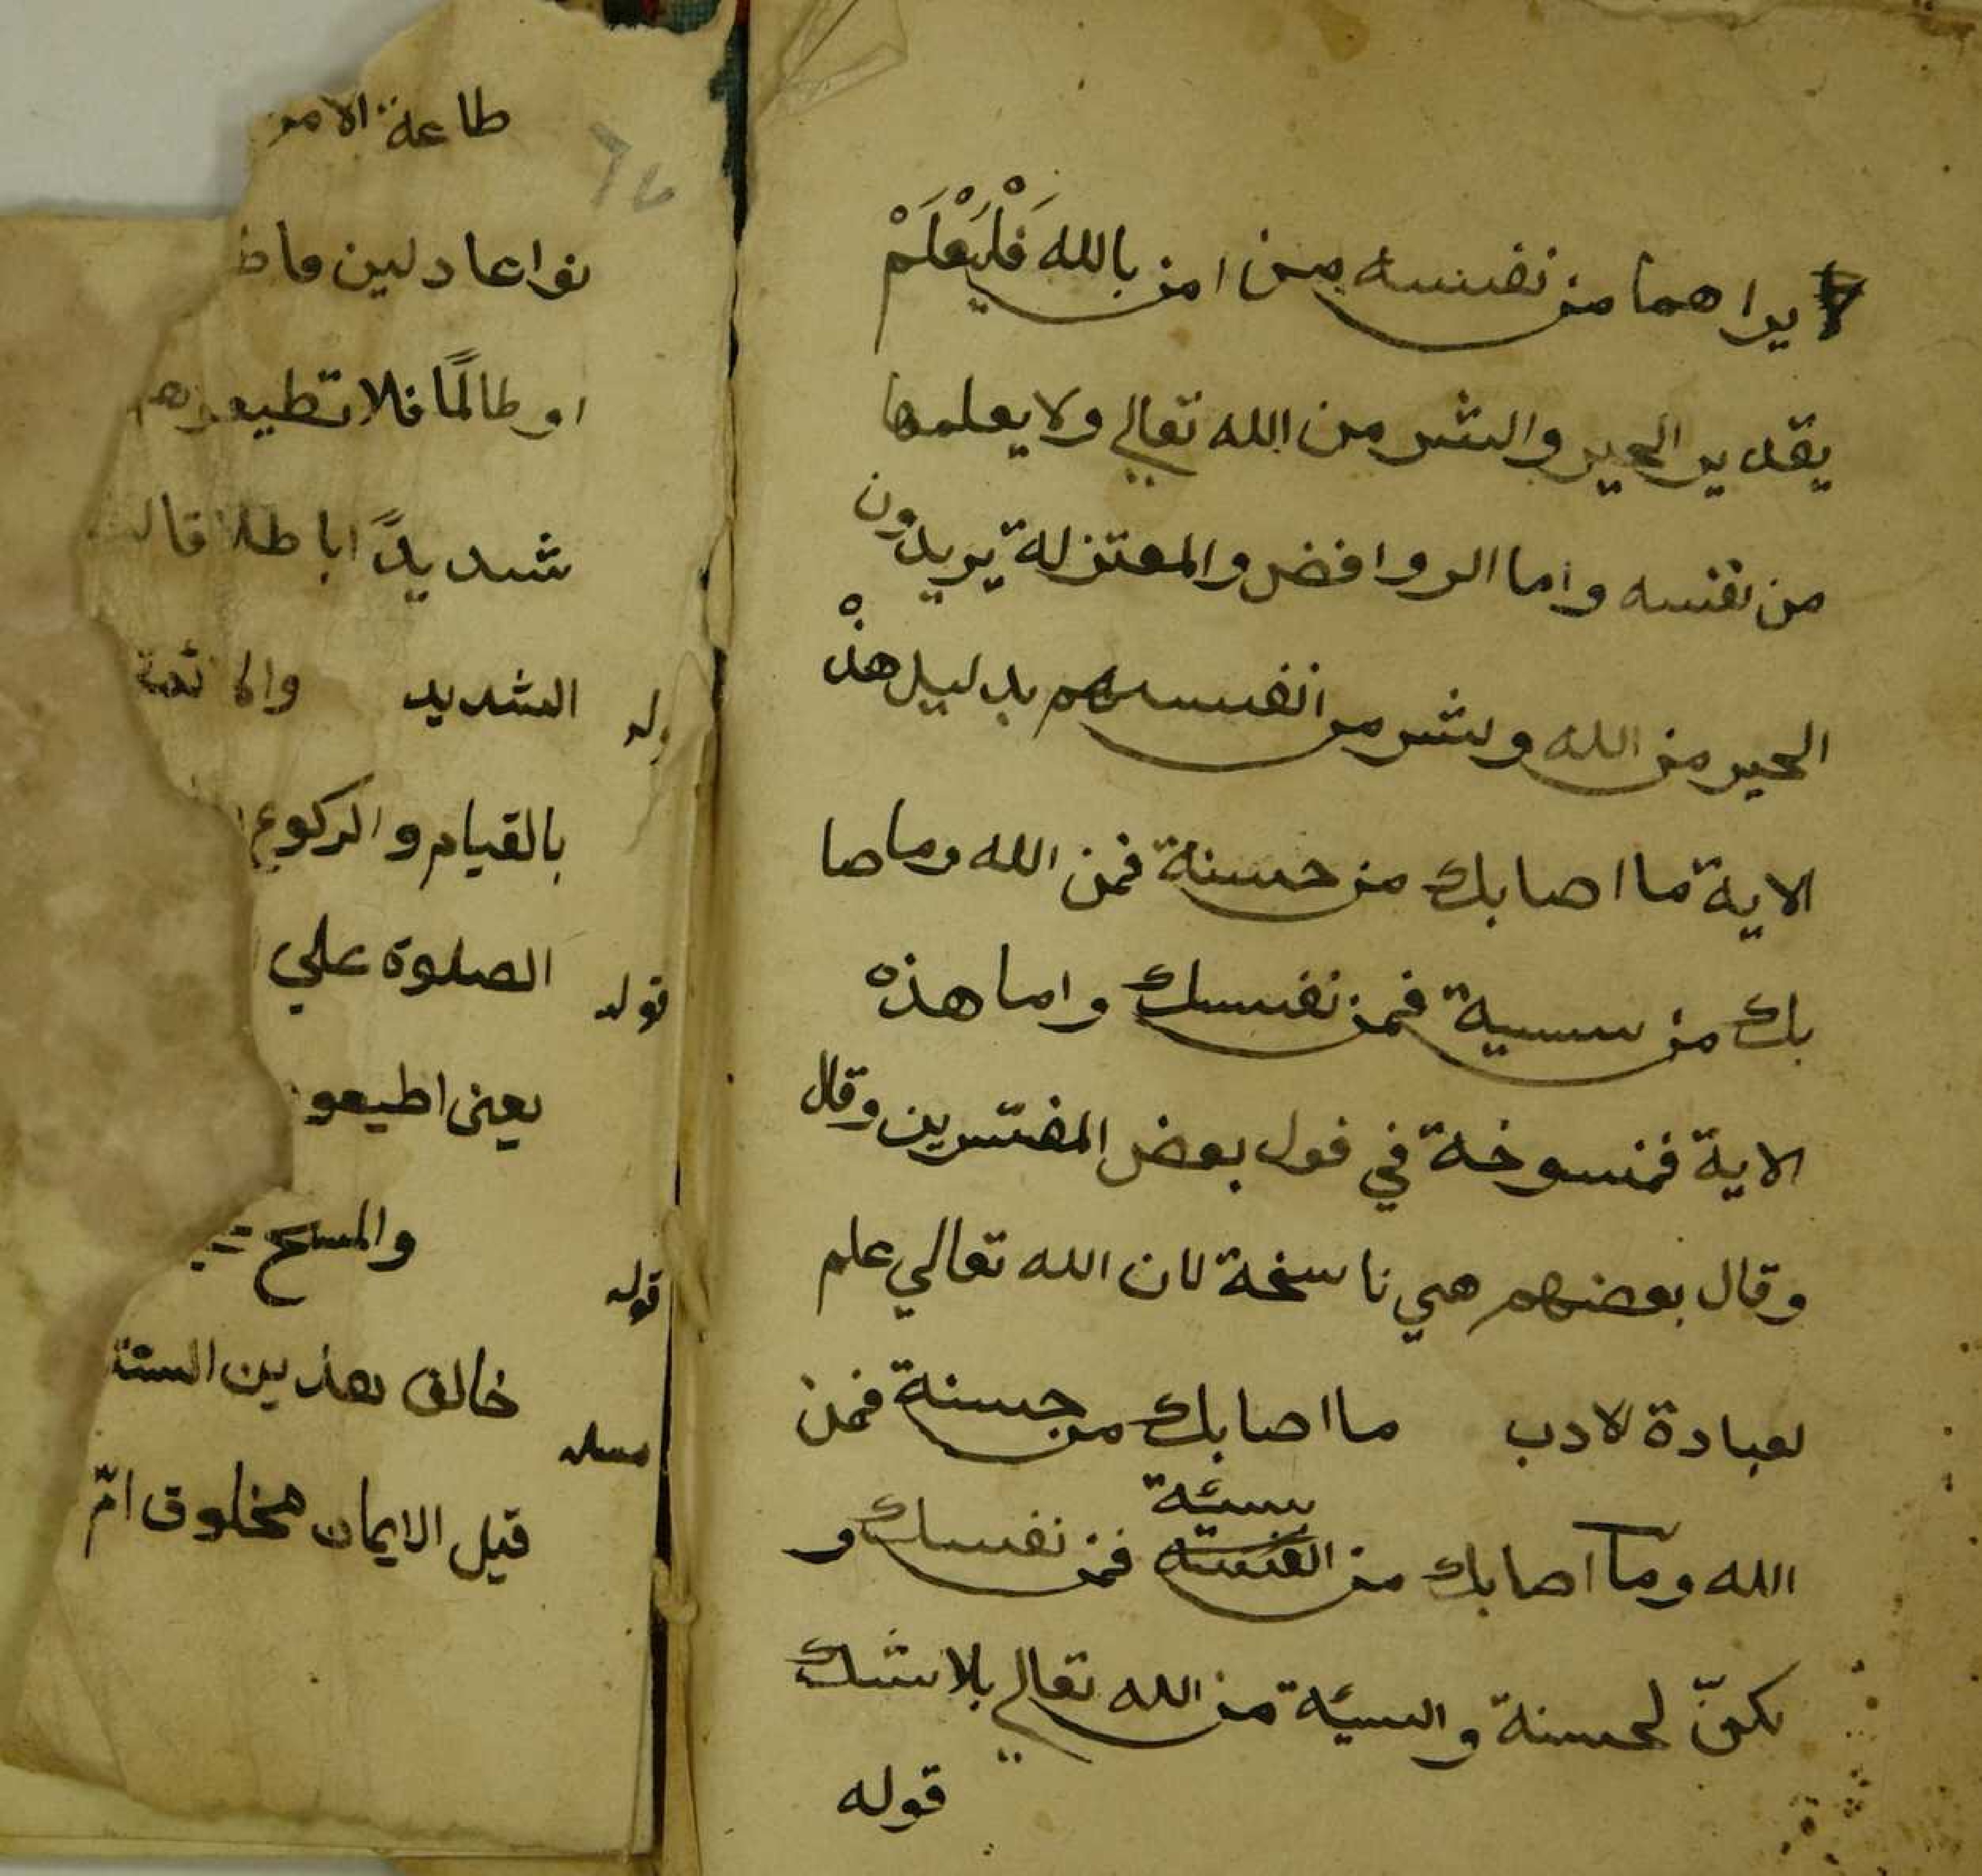 لا يراهما من نفسه من امن بالله فَلْيَعْلَمْ
يقدير الخير والشر من الله تعالي ولا يعلمها
من نفسه واما الروافض والمعتزلة يريدون
الخير من الله وبشر من انفسهم بدليل هذه
الاية ما اصابك من حسنة فمن الله وما صا
بك من سيية فمن نفسك واما هذه
الاية فمنسوخة في قول بعض المفسّرين وقال
وقال بعضهم هي ناسخة لان الله تعالي علم
لعبادة لادب ما اصابك من حسنة فمن
سيئة
الله وما اصابك من فمن نفسك و
لكنّ لحسنة والسيئة من الله تعالي بلا شك
قوله
طاعة الامر
نوا عادلين
او ظالمًا فلا تطيعوهم
شديدًا باطلا قال
الشديد
بالقيام والركوع
الصلوة علي
قوله
يعنى اطيعو
والمسح
قوله
خالق هذين الستة
مسله
قيل الايمان مخلوق امّ